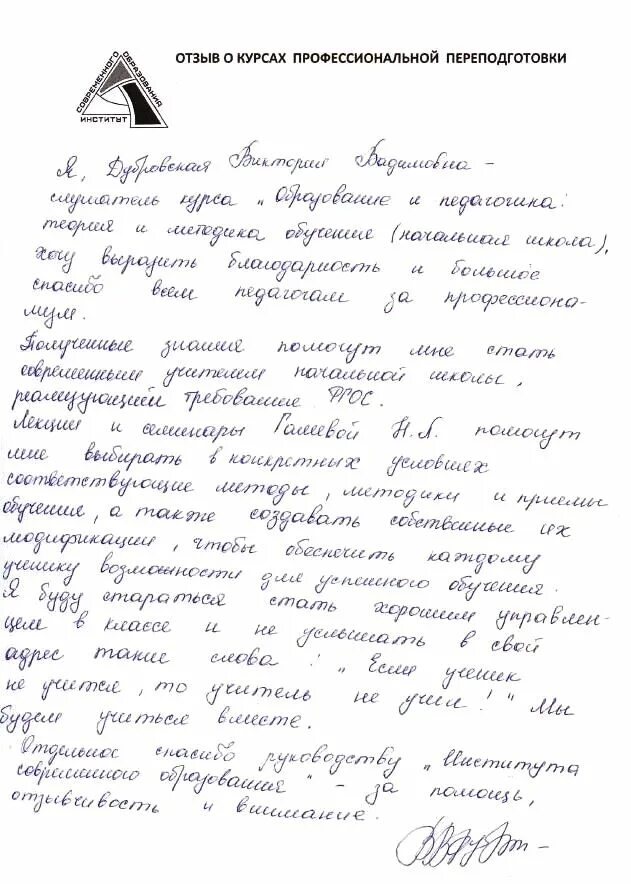 СОВРЕМЕННОГО
ОБРАЗОВАНИЯ
ИНСТИТУТ
ОТЗЫВ О КУРСАХ ПРОФЕССИОНАЛЬНОЙ ПЕРЕПОДГОТОВКИ
Я, Дубровская Виктория Вадимовна –
слушатель курса „Образование и педагогика:
теория и методика обучения (начальная школа),
хочу выразить благодарность и большое
спасибо всем педагогам за профессиона-
лизм.
Полученные знания помогут мне стать
современным учителем начальной школы,
реализующией требования ФГОС.
Лекции и семинары Галеевой Н.Л. помогут
мне выбирать в конкретных условиях
соответствующие методы, методики и приемы
обучения, а также создавать собственные их
модификации, чтобы обеспечить каждому
ученику возможности для успешного обучения.
Я буду стараться стать хорошим управлен-
цем в классе и не услышать в свой
адрес такие слова: „Если ученик
не учится, то учитель не учил!" Мы
будем учиться вместе.
Отдельное спасибо руководству „Института
современного образования" – за помощь,
отзывчивость и внимание.